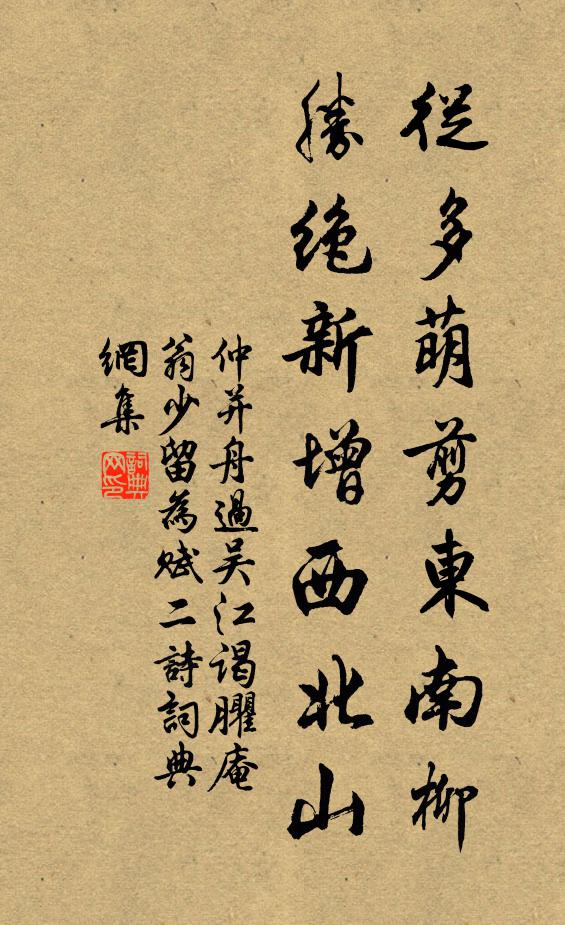 從多萌剪東南柳
勝絶新增西北山
仲并舟過吴江謁臞庵
翁少留為賦二詩詞典
網集
詞典網印